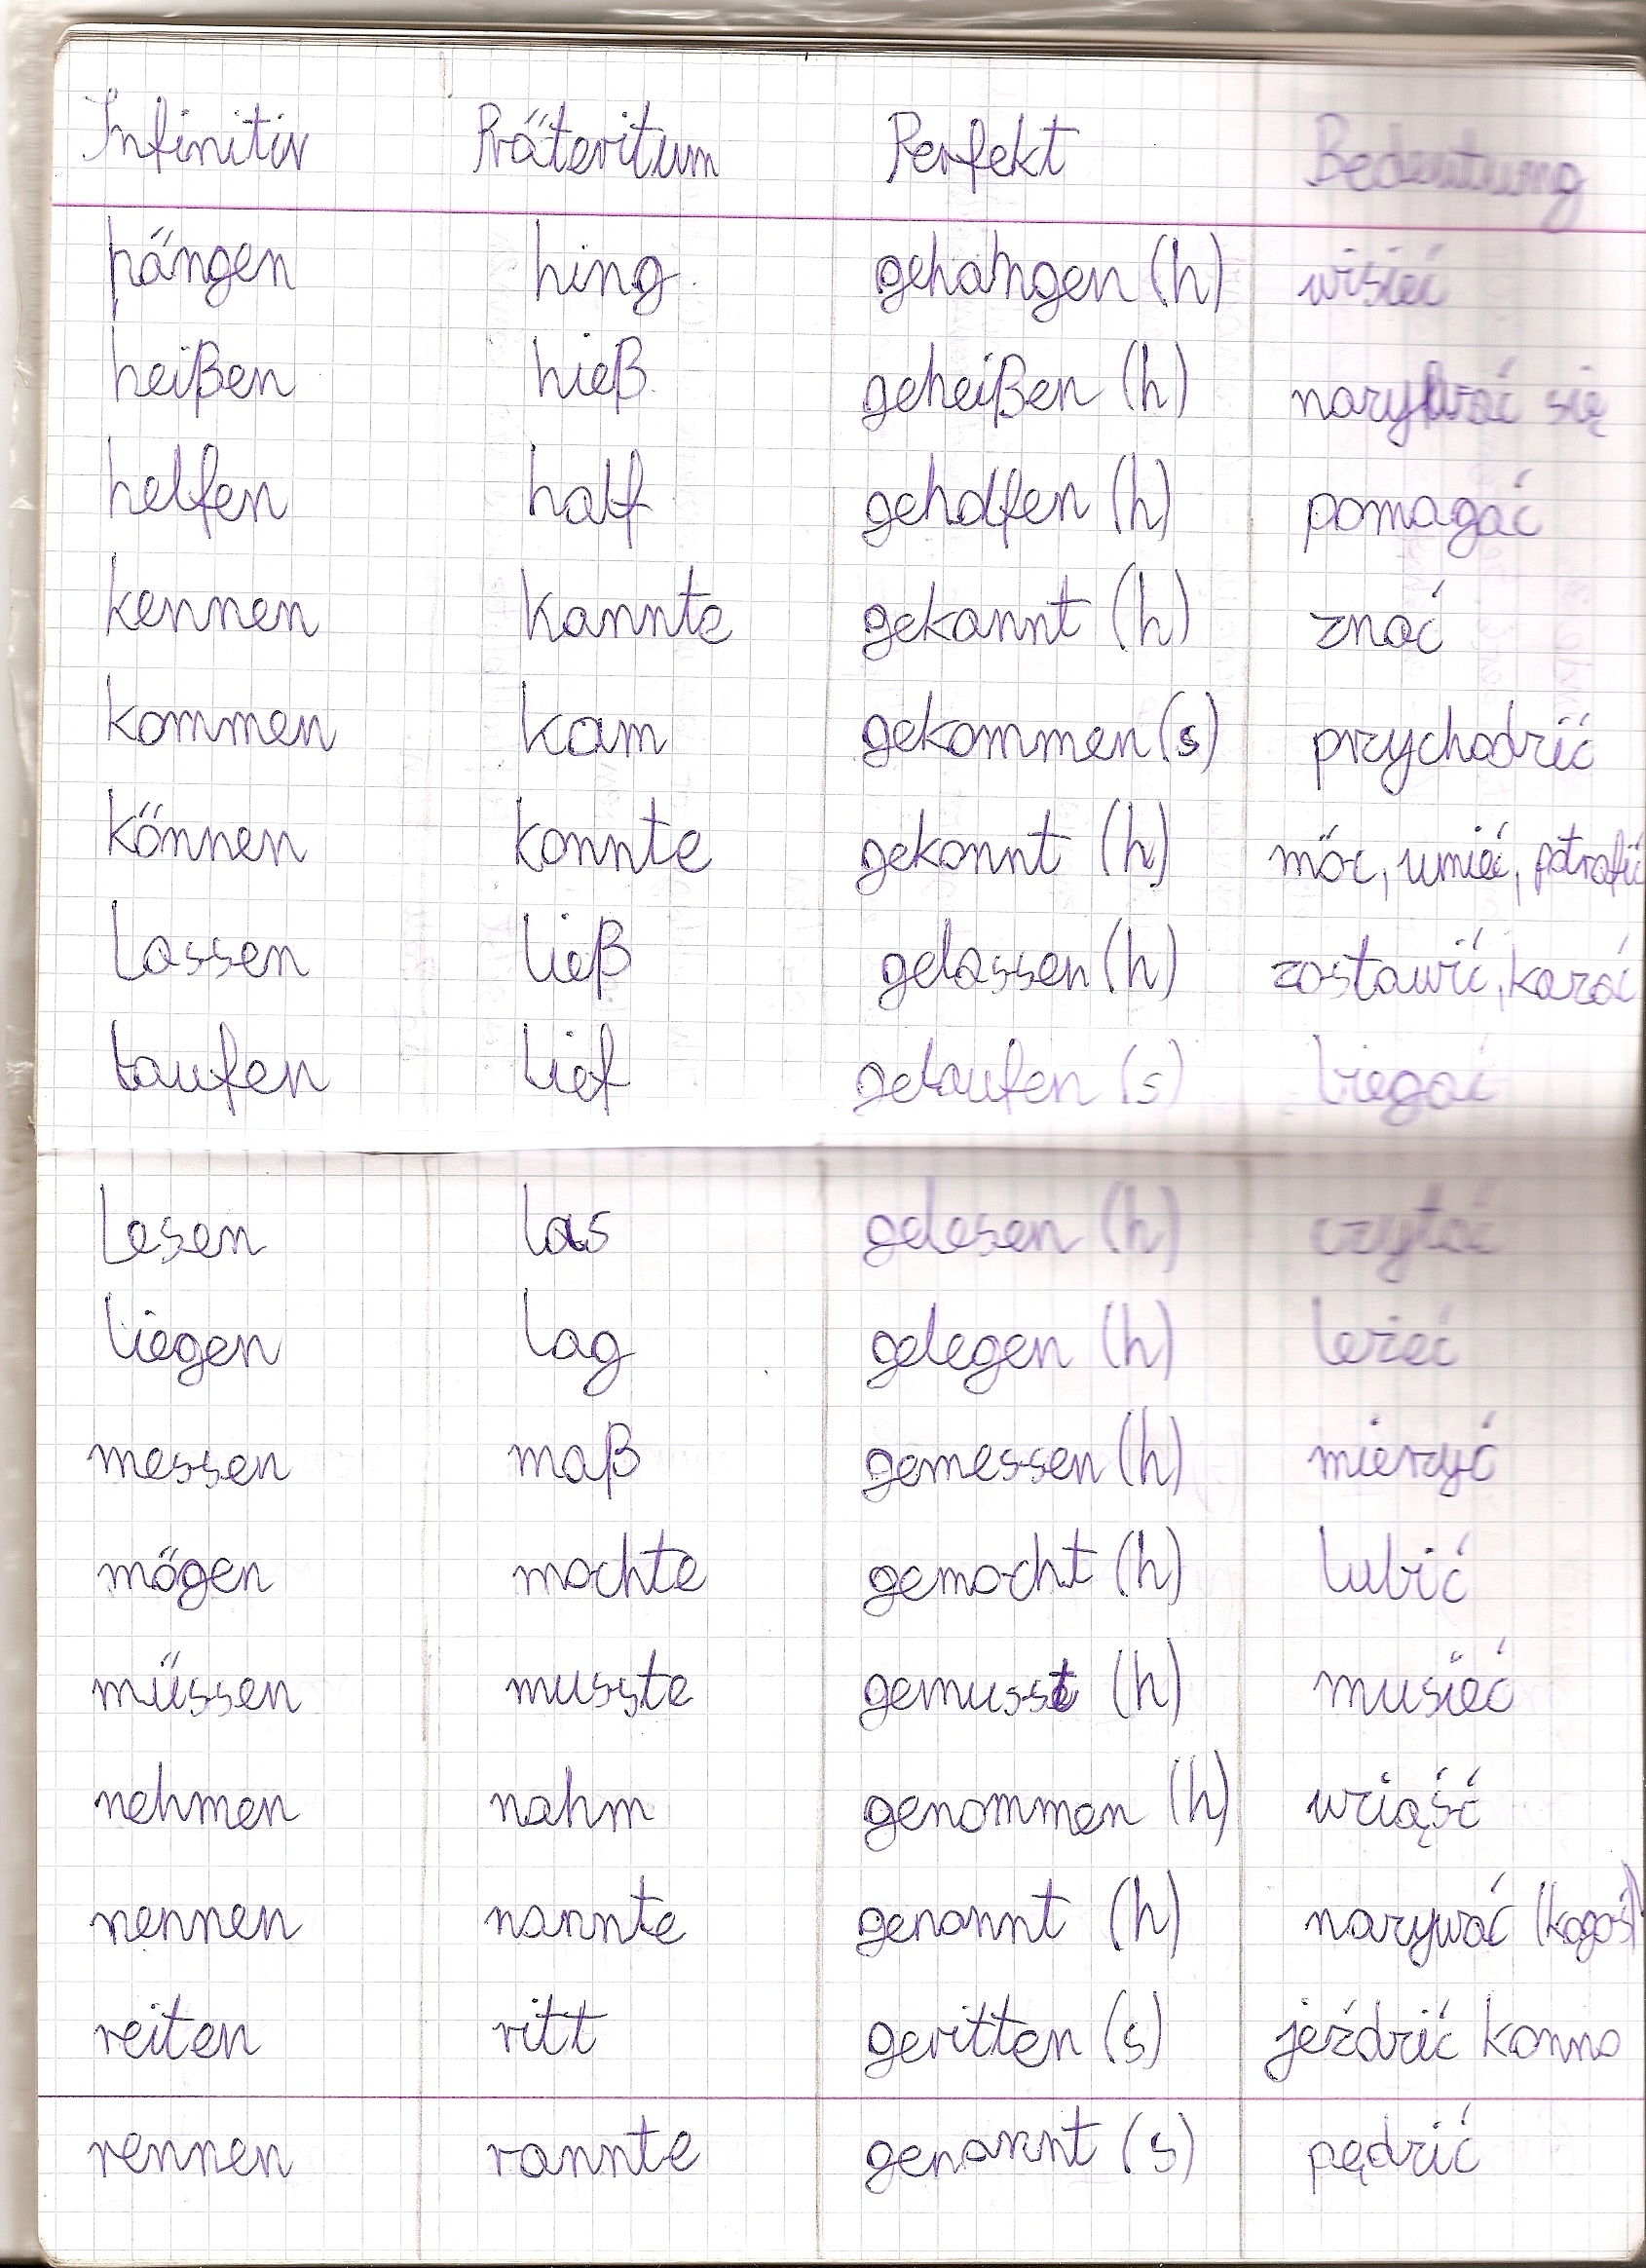 Infinitiv Präteritum Perfekt Bedeutung
hängen hing gehangen (h) wisieć
heißen hieß geheißen (h) nazywać się
helfen half geholfen (h) pomagać
kennen kannte gekannt (h) znać
kommen kam gekommen (s) przychodzić
können konnte gekonnt (h) móc, umieć, potrafić
lassen ließ gelassen (h) zostawić, kazać
laufen lief gelaufen (s) biegać
lesen las gelesen (h) czytać
liegen lag gelegen (h) leżeć
messen maß gemessen (h) mierzyć
mögen mochte gemocht (h) lubić
müssen musste gemusst (h) musieć
nehmen nahm genommen (h) wziąść
nennen nannte genannt (h) nazywać (kogoś)
reiten ritt geritten (s) jeździć konno
rennen rannte genannt (s) pędzić